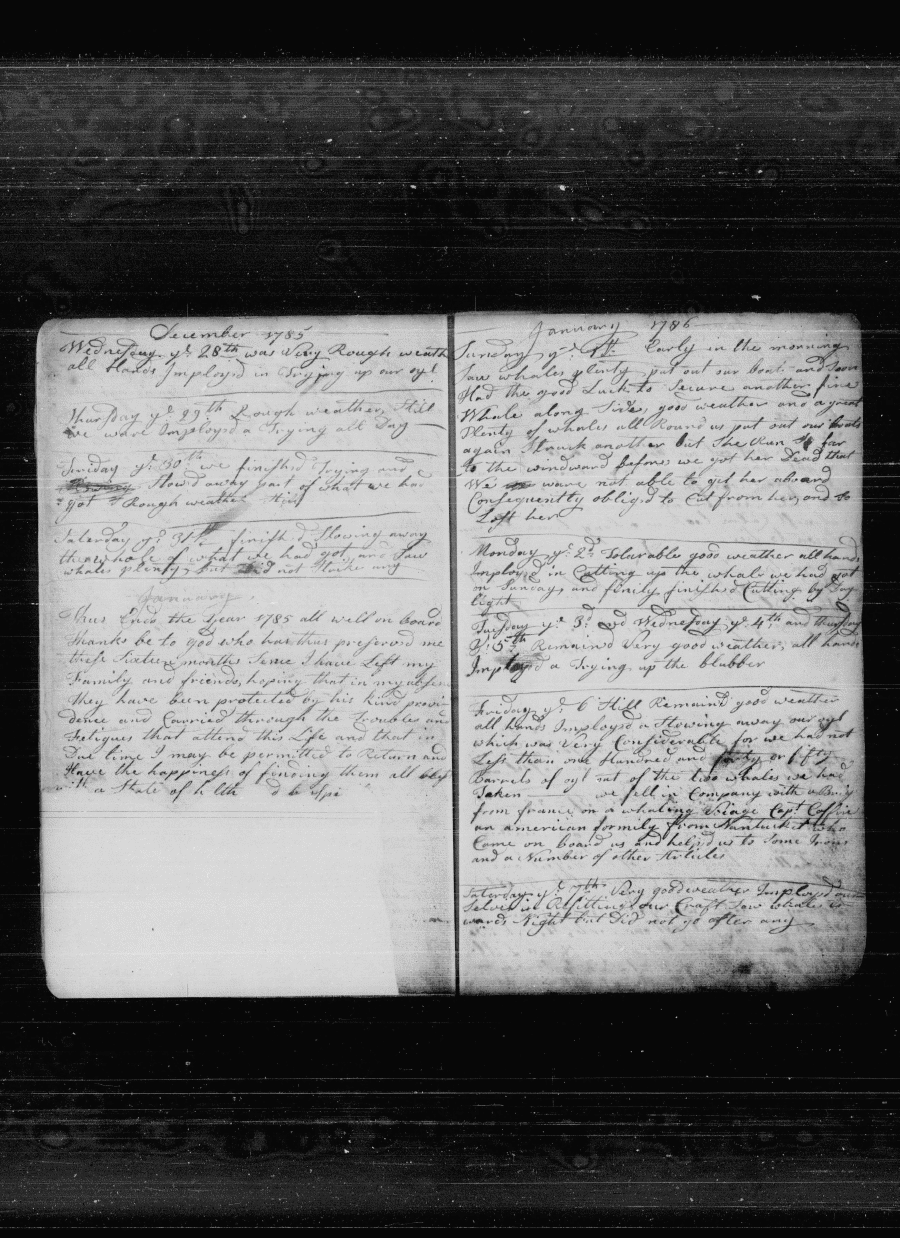 December 1785
Wednesday ye 28th was Very Rough weath
all Hands Imploysd in Trying up our oyl
Thursday ye 29th Rough weather Still
we ware Imploysd a Trying all Day
ye 30th we finishd Trying and
Stow'd away part of what we had
got Rough weather Still
Saterday ye 31st finishd Stowing away
the whole of what we had got and Saw
whales plenty but Did not Strike any
January
Thus Ends the year 1785 all well on board
thanks be to god who has thus preservd me
these Sixteen months Sence I have Left my
Family and friends, hoping that in my absen
they have been protected by his kind provi
dence and Carried through the Troubles and
Fatigues that attend this Life and that in
Due time I may be permitted to Return and
Have the happiness of finding them all
with a State of
January 1786
Sunday ye 1st Early in the morning
Saw whales plenty put out our boats and Soon
Had the good Luck to Secure another fine
Whale along Side, good weather and a great
Plenty of whales all Round us put out our boats
again Struck another but She Run So far
to the windward before we got her Dead that
We ware not able to get her aboard
Consequently obligd to Cut from her, and so
Left her
Monday ye 2d Tolarable good weather all hands
Imployd in Cutting up the whale we had got
on Sunday and finishd Cutting by Day
light
Tuesday ye 3d and Wednesday ye 4th and thursday
ye 5th Remaind Very good weather, all hands
Imployd a Trying up the blubber
Friday ye 6 Still Remaind good weather
all hands Imploysd a Stowing away our oyl
which was Very Considerable for we had not
Less than one Hundred and forty or fifty
Barrels of oyl out of the two whales we had
Taken we fell in Company with a Brig
from france on a whaling Voiage Capt Coffin
an american formily from Nantucket who
Came on board us and helpd us to Some Irons
and a Number of other Articles
Saterday ye 7th Very good weather Imployd our
Selves in Refitting our Craft Saw whales
wards Night but Did not go after any